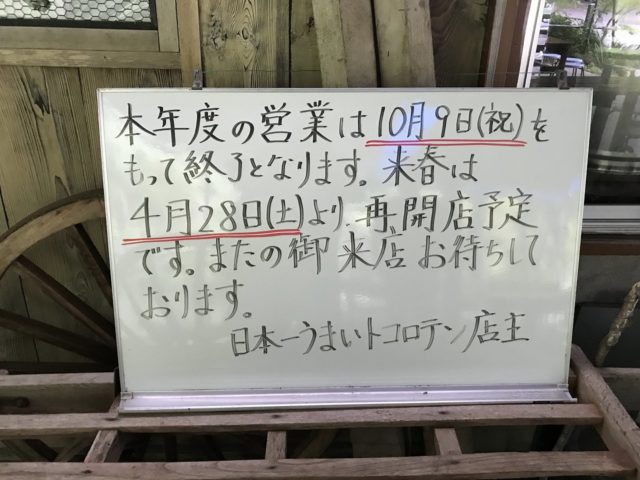 本年度の営業は10月9日(祝)を
もって終了となります。来春は
4月28日(土)より、再開店予定
です。またの御来店お待ちして
おります。
日本一うまいトコロテン店主